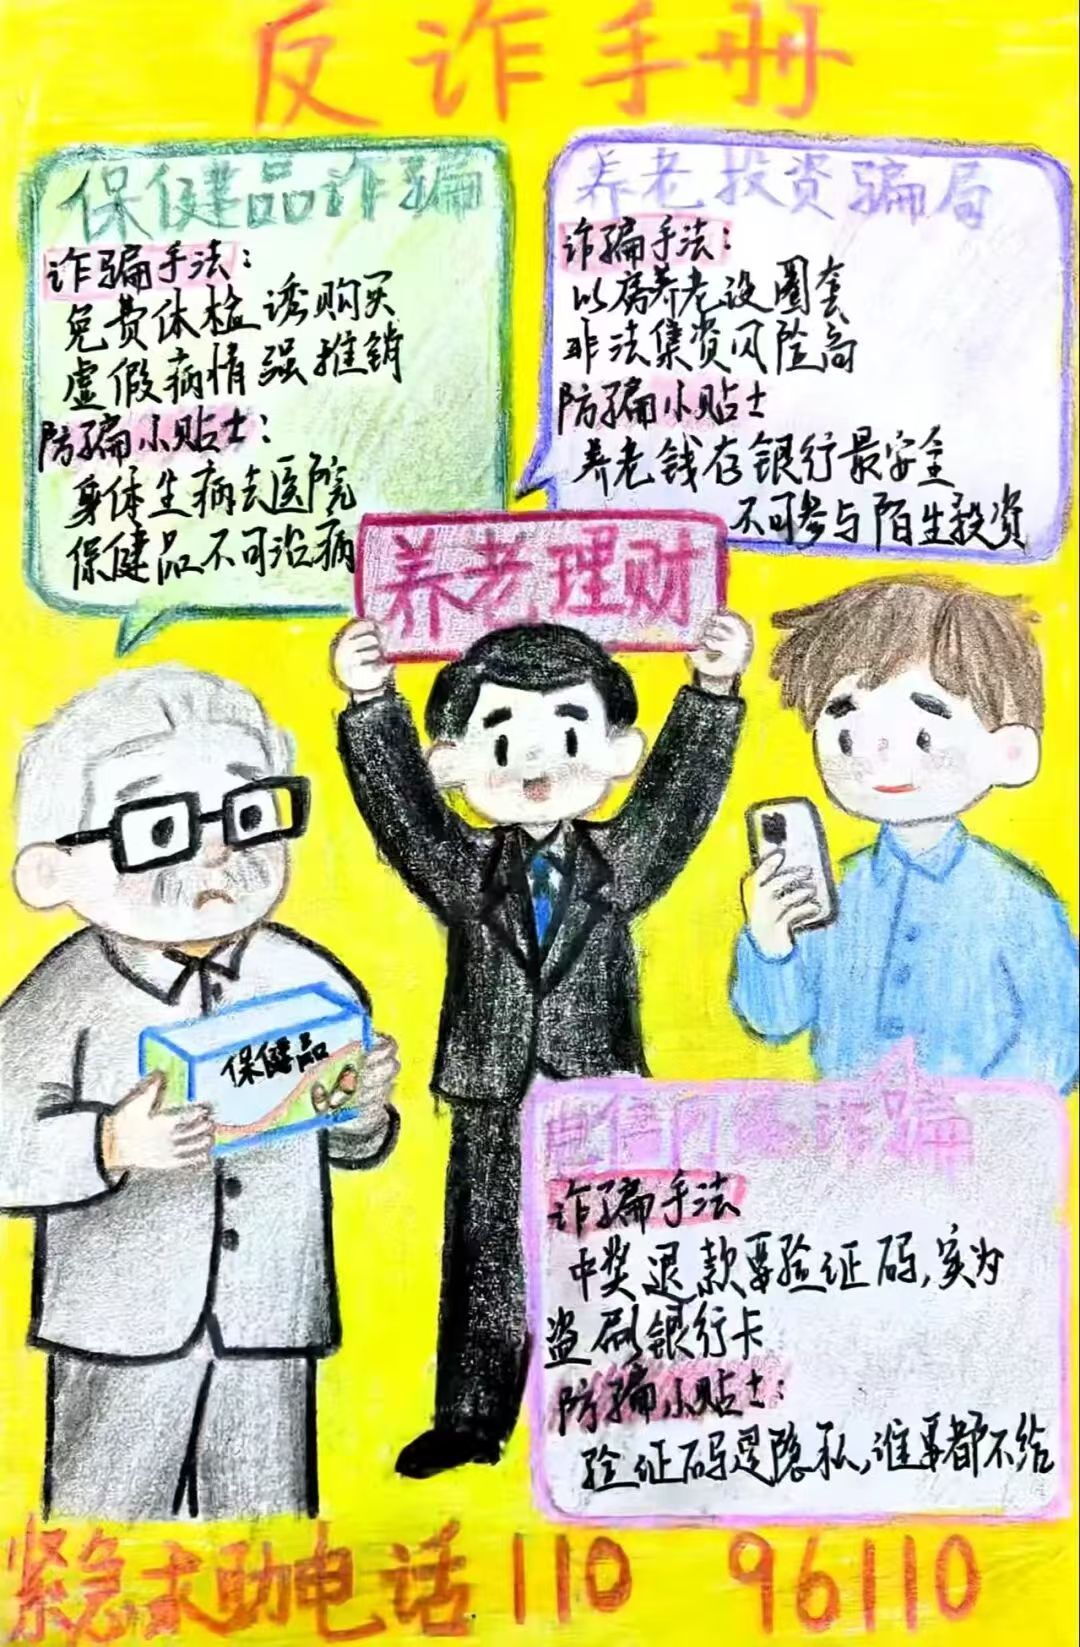 反诈手册
保健品诈骗
诈骗手法：
免费体检诱购买
虚假病情强推销
防骗小贴士：
身体生病去医院
保健品不可治病
养老投资骗局
诈骗手法：
以房养老设圈套
非法集资风险高
防骗小贴士
养老钱存银行最安全
不可参与陌生投资
养老理财
保健品
电信网络诈骗
诈骗手法
中奖退款要验证码，实为
盗刷银行卡
防骗小贴士：
验证码是隐私，谁要都不给
紧急求助电话110 96110